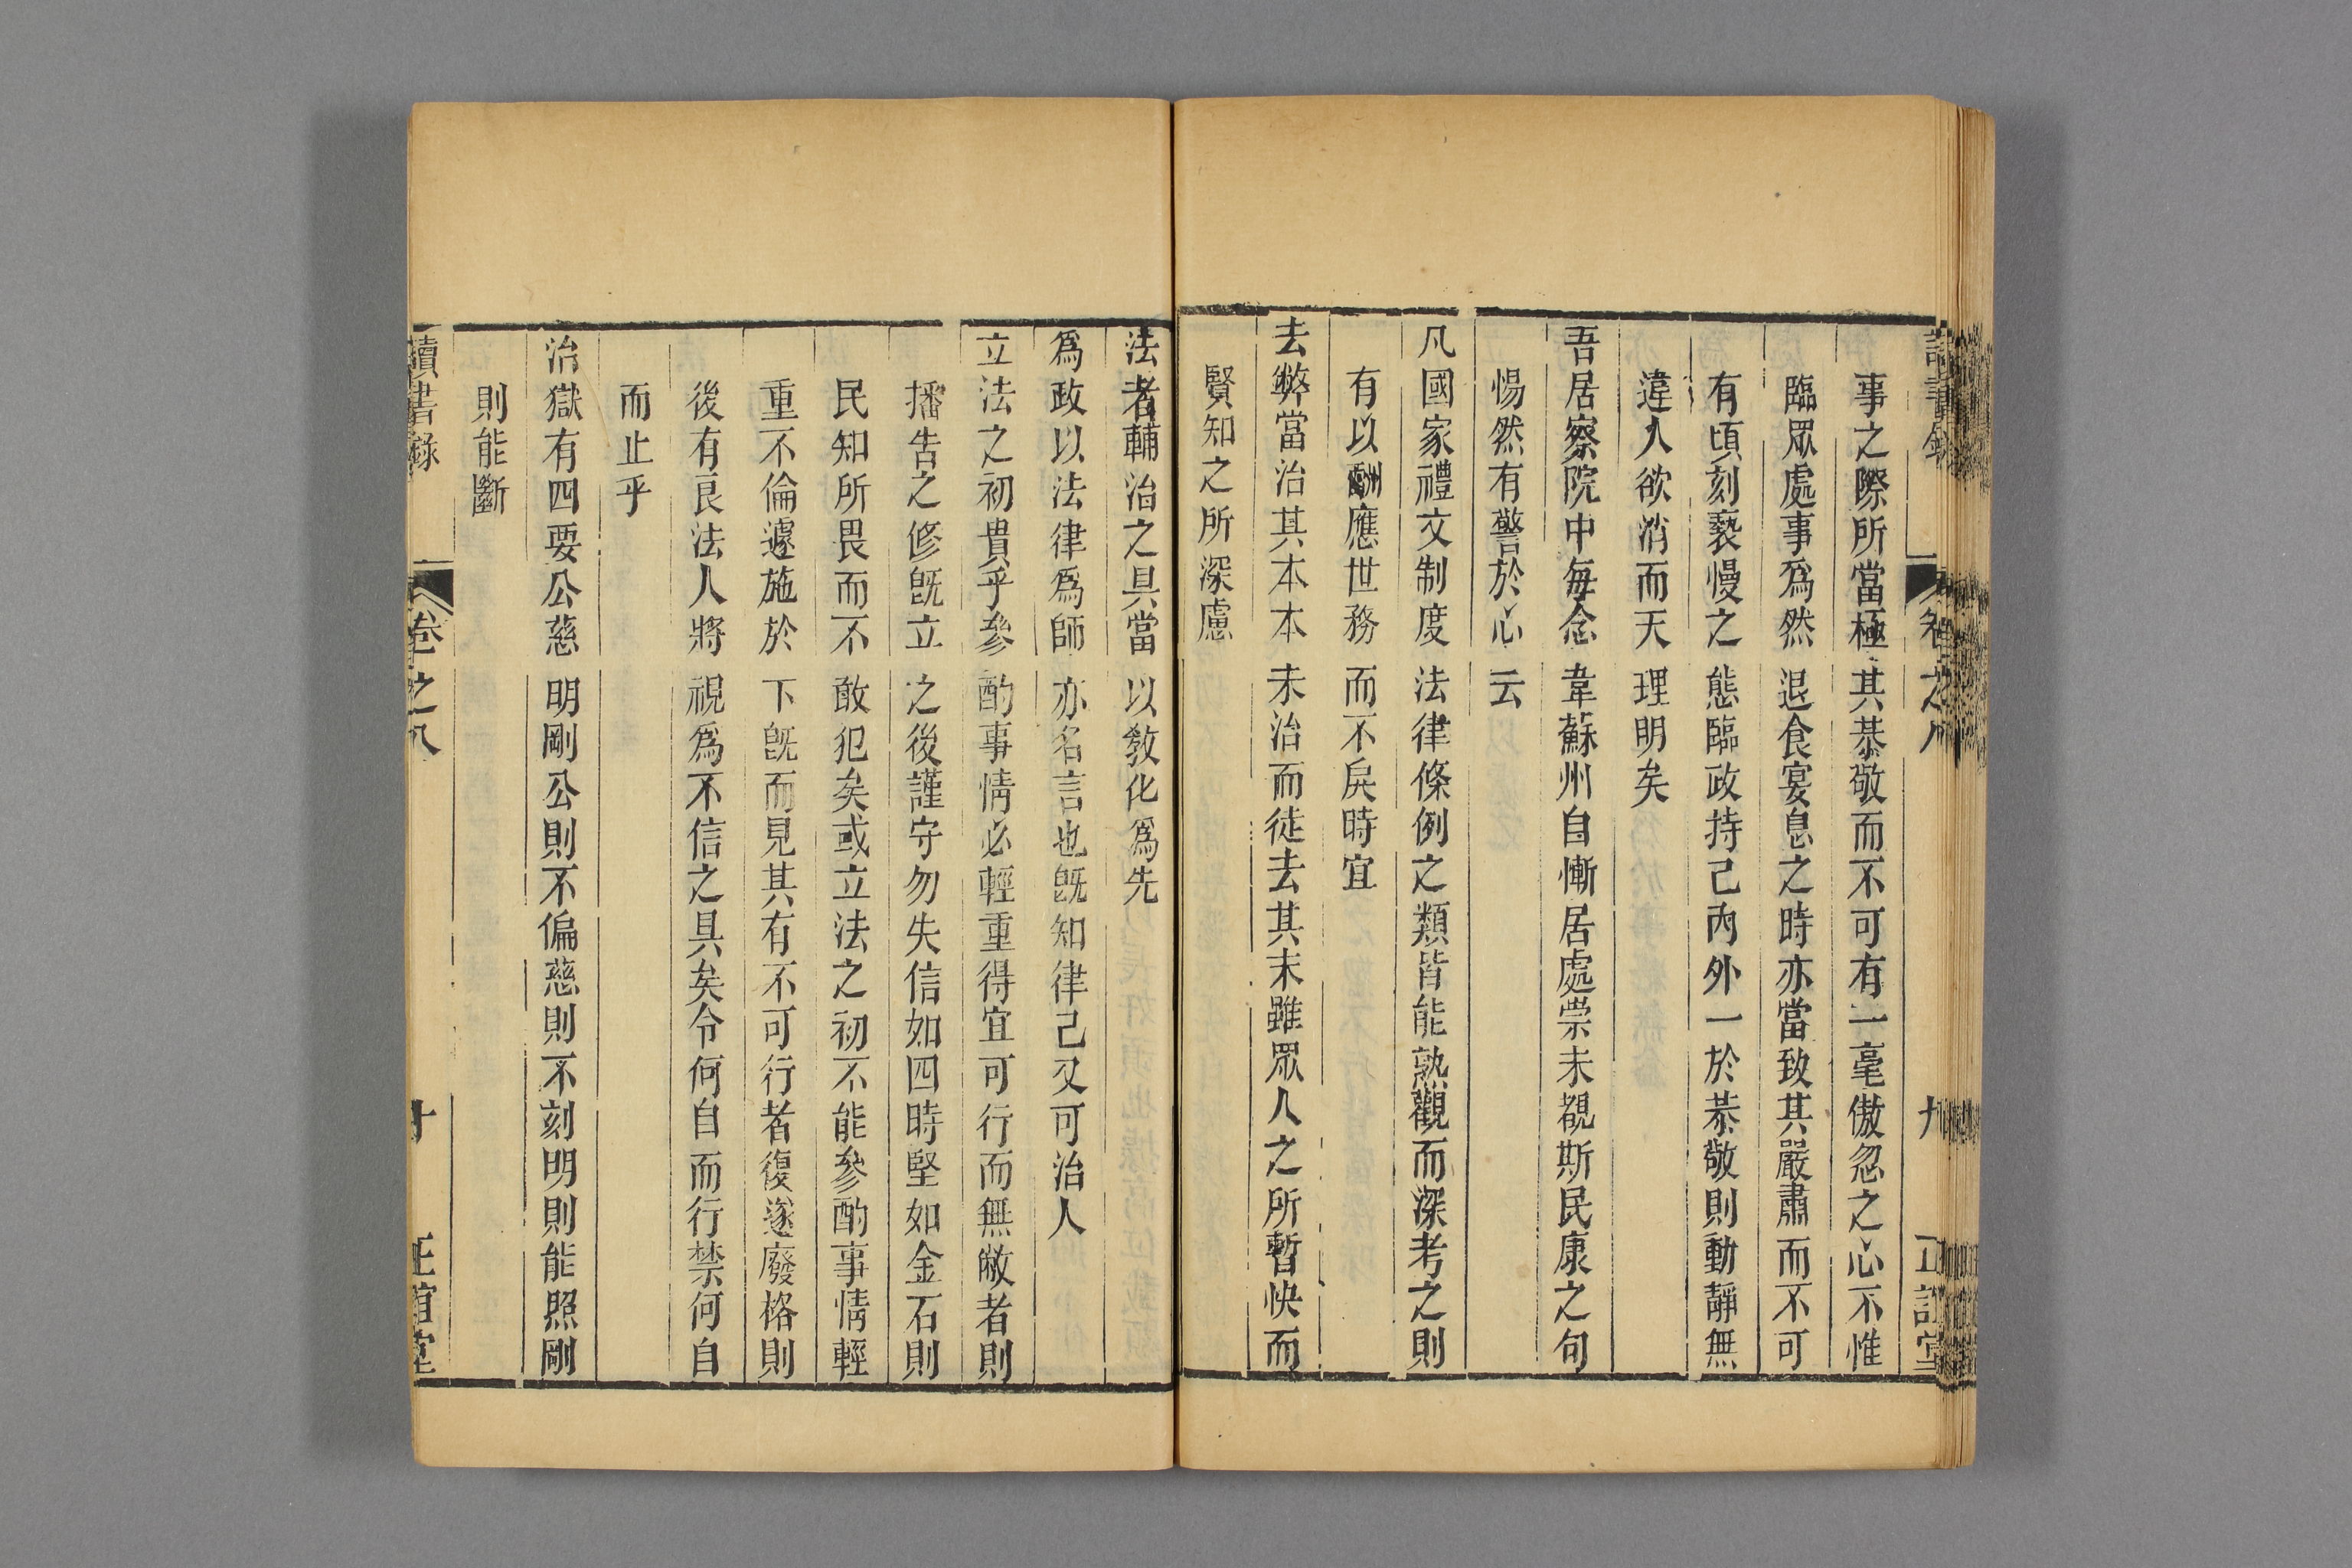 讀書錄 卷之八 九 正誼堂
事之際所當極其恭敬而不可有一毫傲忽之心不惟
臨眾處事爲然退食宴息之時亦當致其嚴肅而不可
有頃刻褻慢之態臨政持己內外一於恭敬則動靜無
違人欲消而天理明矣
吾居察院中每念韋蘇州自慚居處崇未覩斯民康之句
惕然有警於心云
凡國家禮文制度法律條例之類皆能熟觀而深考之則
有以酬應世務而不戾時宜
去弊當治其本本未治而徒去其末雖眾人之所暫快而
賢知之所深慮
法者輔治之具當以教化爲先
爲政以法律爲師亦名言也既知律己又可治人
立法之初貴乎參酌事情必輕重得宜可行而無敝者則
播告之修既立之後謹守勿失信如四時堅如金石則
民知所畏而不敢犯矣或立法之初不能參酌事情輕
重不倫遽施於下既而見其有不可行者復遂廢格則
後有良法人將視爲不信之具矣令何自而行禁何自
而止乎
治獄有四要公慈明剛公則不偏慈則不刻明則能照剛
則能斷
讀書錄 卷之八 十 正誼堂